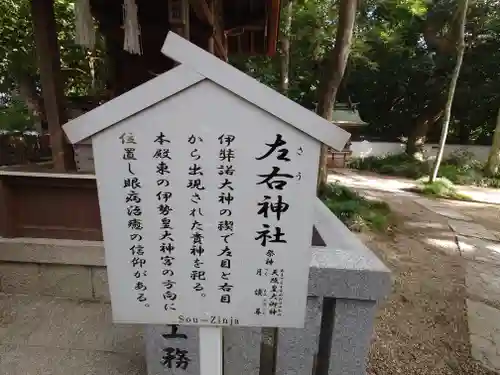 左右神社
さ
う
祭神
天照皇大御神
月讀尊
伊弉諾大神の禊で左目と右目
から出現された貴神を祀る。
本殿東の伊勢皇大神宮の方向に
位置し眼病治癒の信仰がある。
Sou-Zinja
務